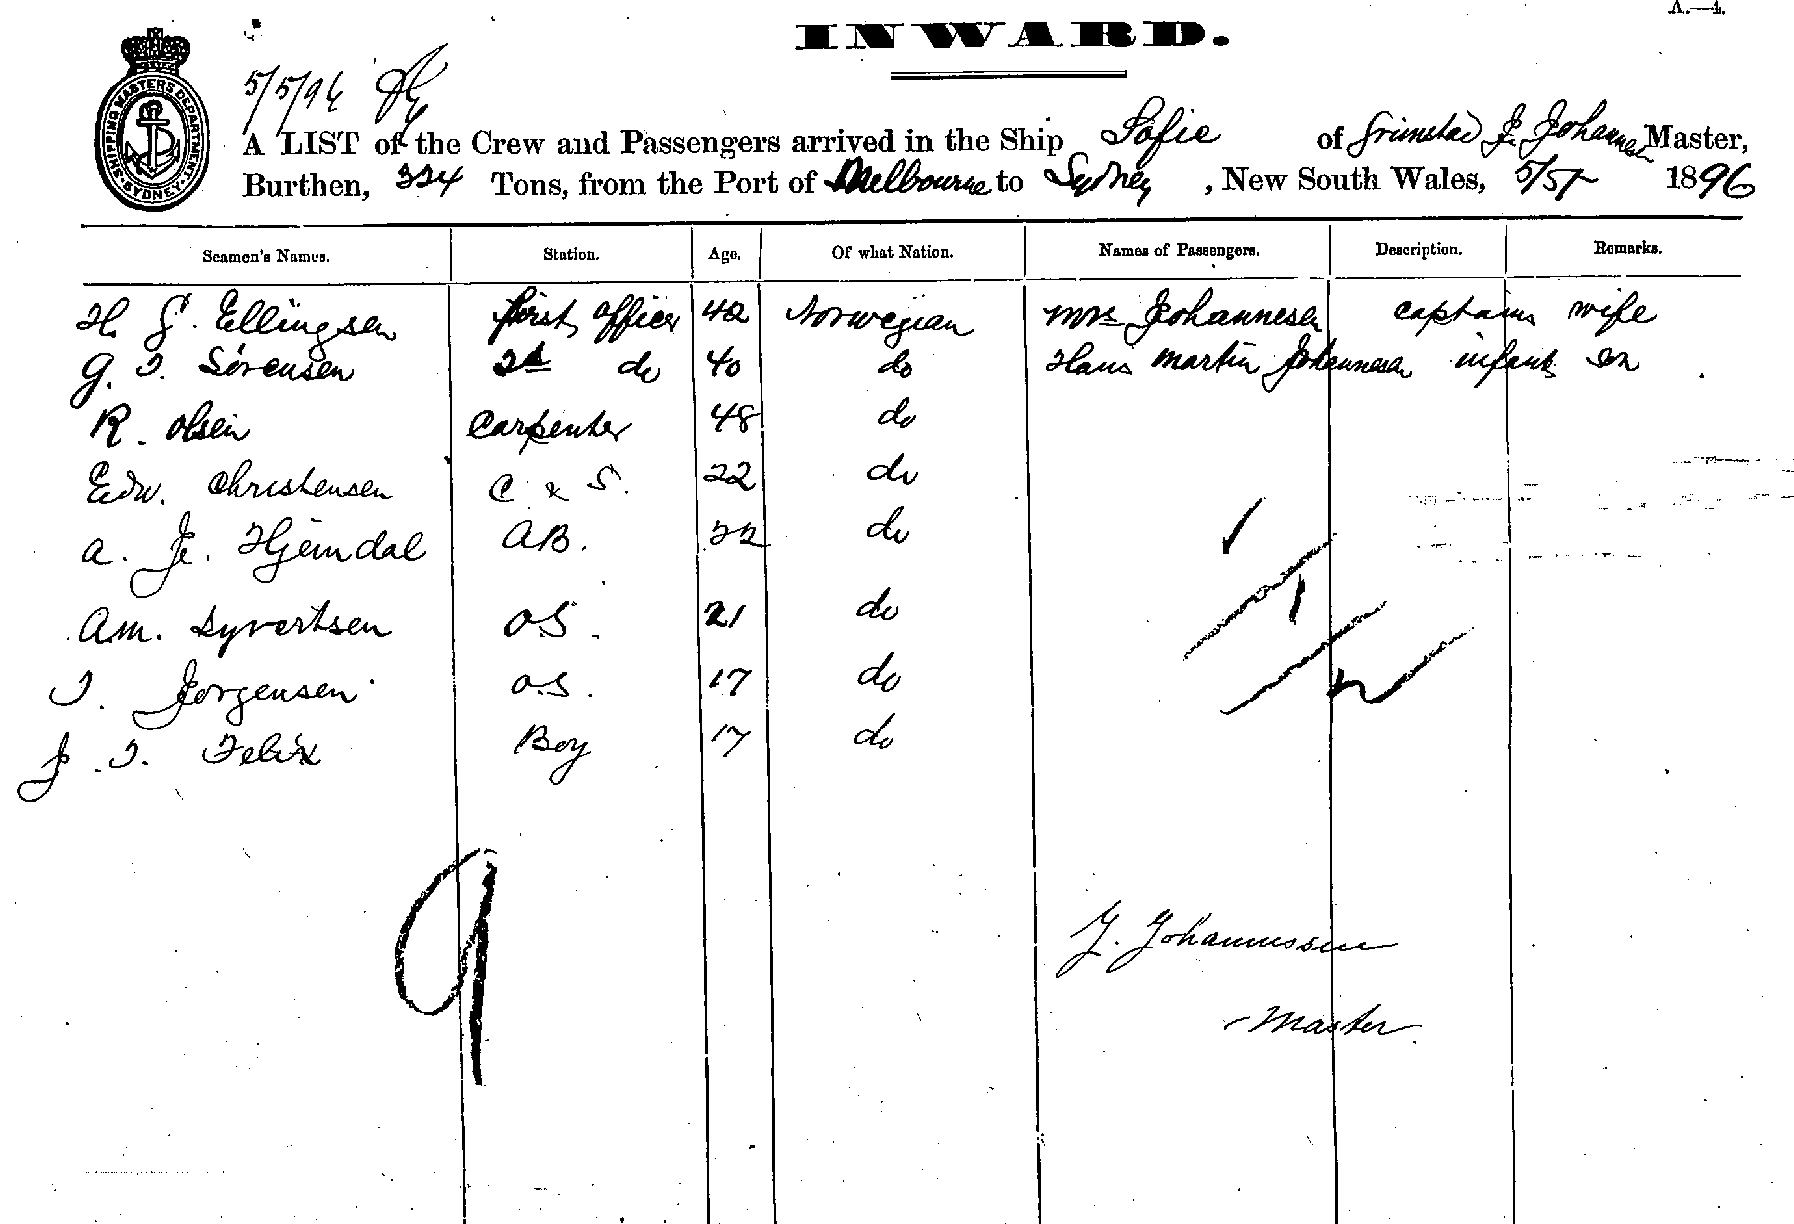 A.—4.
INWARD.
SHIPPING MASTER'S DEPARTMENT SYDNEY
5/5/96
A LIST of the Crew and Passengers arrived in the Ship Sofie of Grimstad J. Johannesen Master,
Burthen, 334 Tons, from the Port of Melbourne to Sydney, New South Wales, 5/5 1896
Seamen's Names. Station. Age. Of what Nation. Names of Passengers. Description. Remarks.
H. G. Ellingsen first officer 42 Norwegian Mrs Johannesen captains wife
G. T. Sörensen 2d do 40 do Hans Martin Johannesen infant son
R. Olsen Carpenter 48 do
Edw. Christensen C & S. 22 do
A. Je. Hjemdal AB. 22 do
Am. Syvertsen OS. 21 do
T. Jorgensen O.S. 17 do
J. T. Felix Boy 17 do
9
J. Johannessen
Master